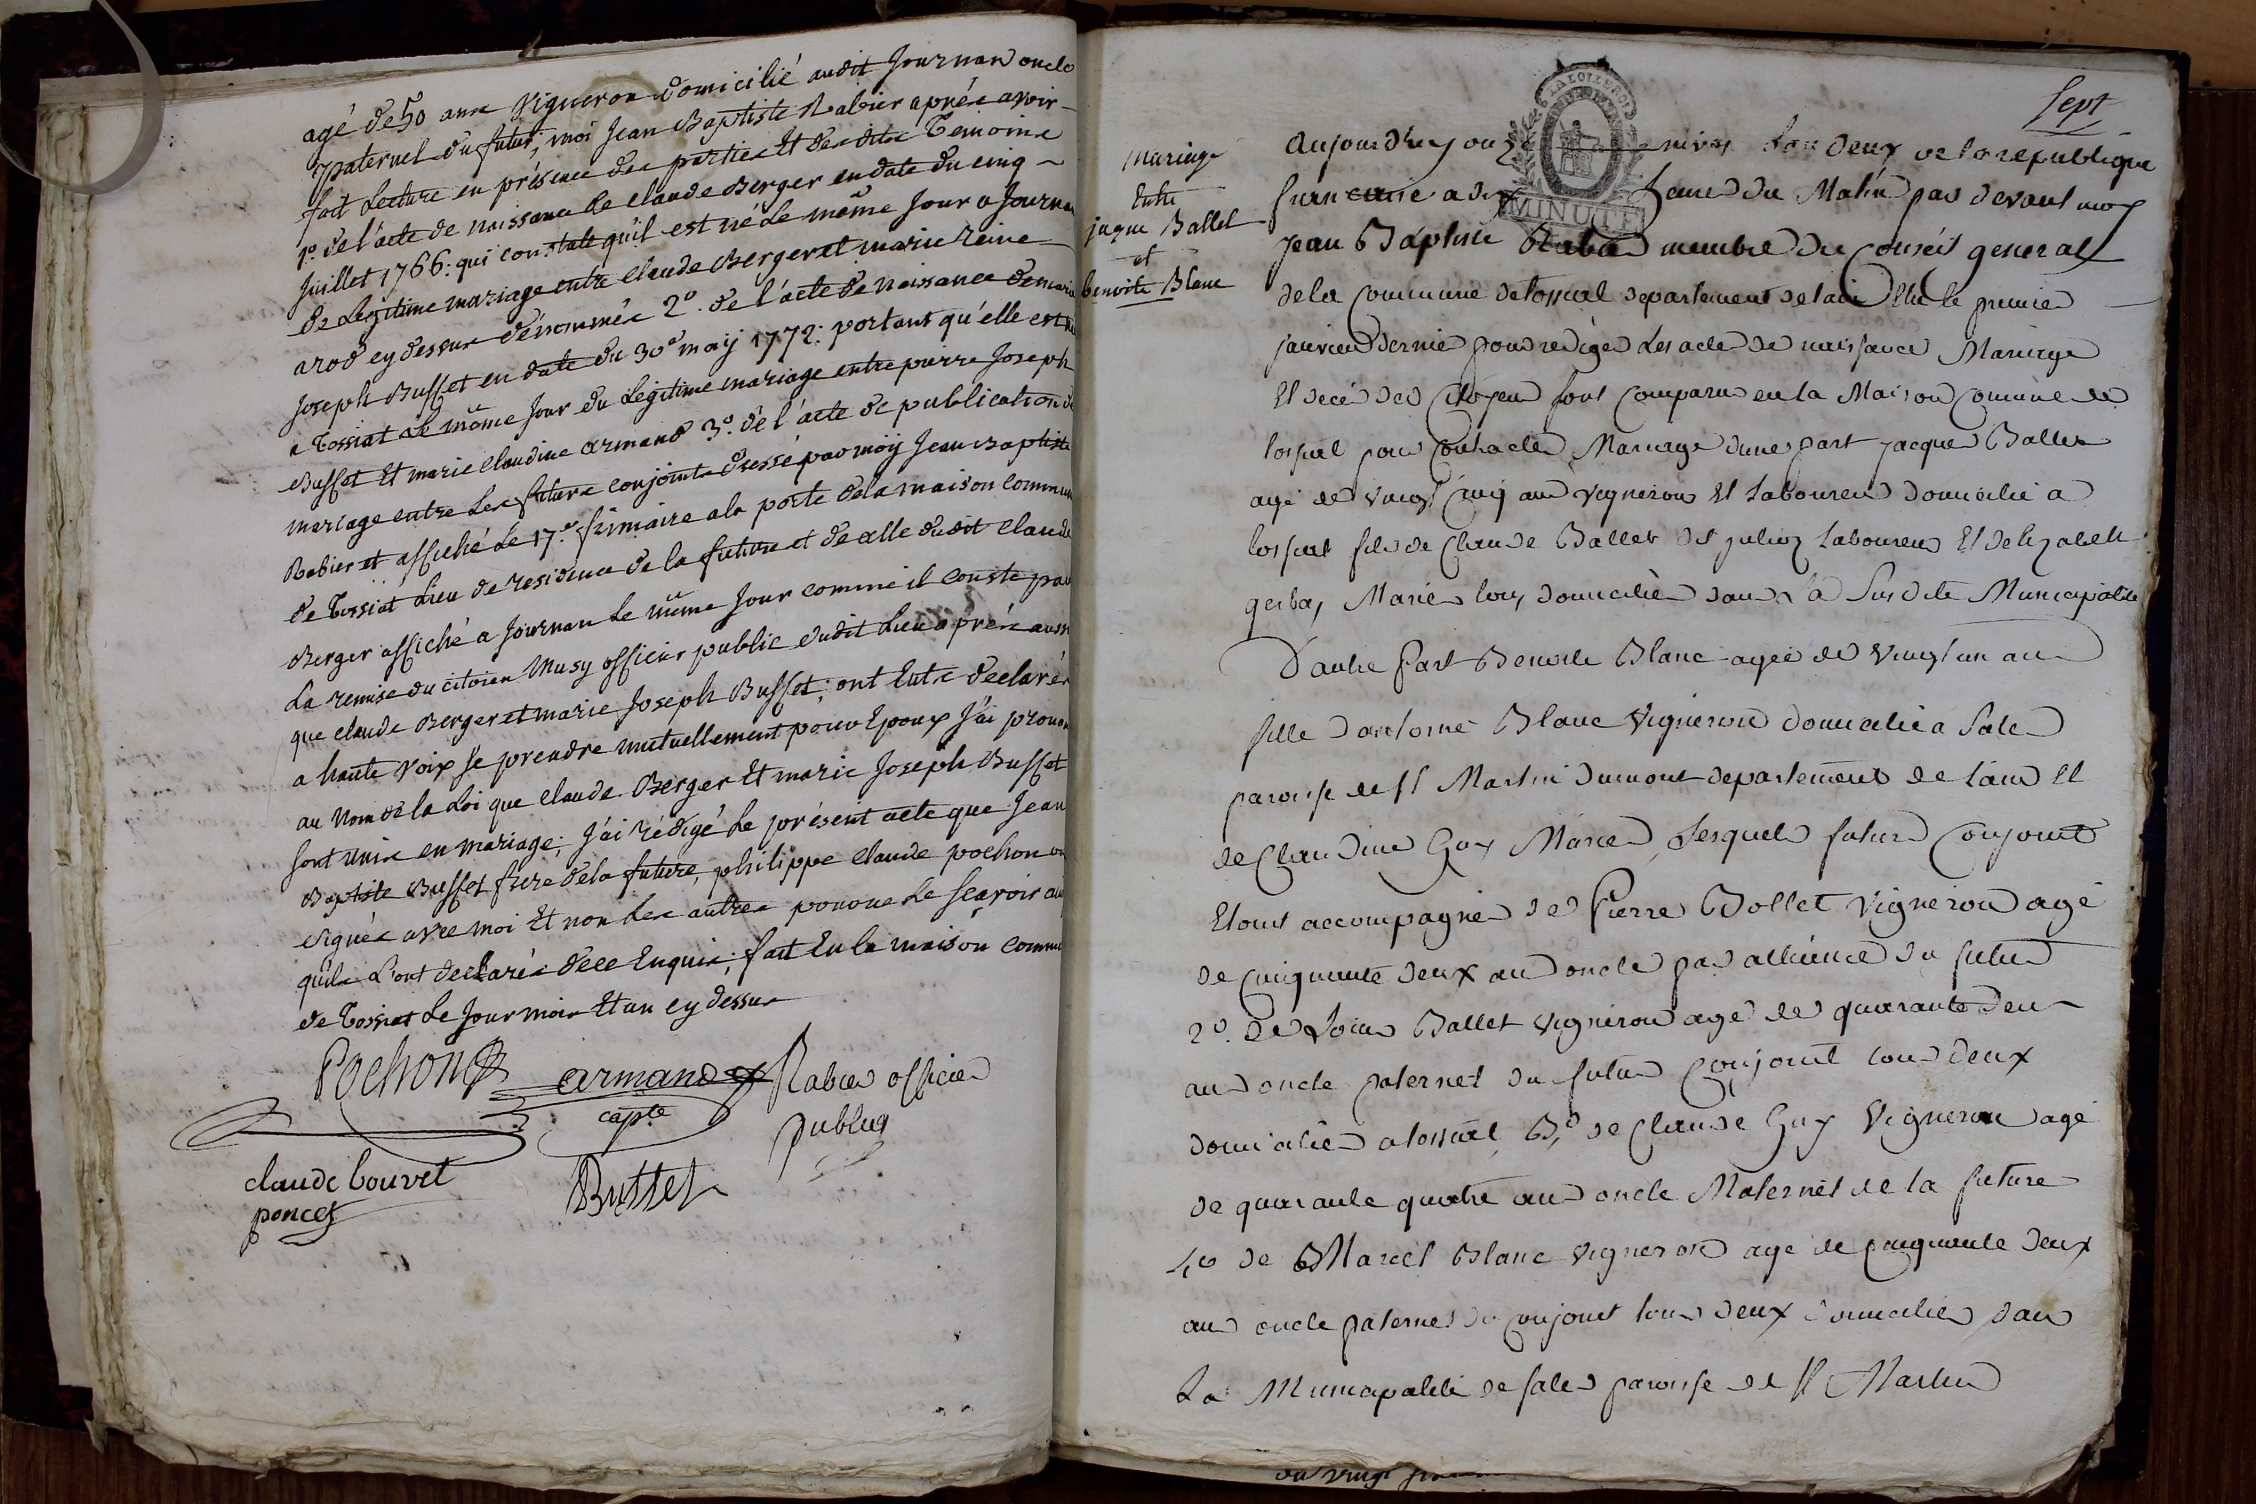 agé de 50 ans vigneron domicilié audit Journan oncle
paternel du futur; moi Jean Baptiste Rabier après avoir
fait Lecture en présence des parties Et des dits Temoins
1º. de l'acte de naissance de claude Berger en date du cinq
Juillet 1766. qui constate qu'il est né Le même Jour a Journan
de Légitime mariage entre claude Berger et marie reine
arod cy dessus dénommés 2º. de l'acte de naissance de marie
Joseph Buffet en date du 30e may 1772. portant qu'elle est née
a Tossiat Le même Jour du Légitime mariage entre pierre Joseph
Buffet Et marie claudine armand 3º. de l'acte de publication de
mariage entre Les futurs conjoints dressé par moy Jean Baptiste
Rabier et affiché Le 17.e frimaire a la porte de la maison commune
de Tossiat Lieu de residence de la future et de celle dudit claude
Berger affiché a Journan Le même Jour comme il conste par
La remise du citoien Musy officier public dudit Lieu après aussi
que claude Berger et marie Joseph Buffet; ont Entre declarés
a haute voix se prendre mutuellement pour Epoux J'ai prononcé
au Nom de la Loi que claude Berger Et marie Joseph Buffet
sont unis en mariage; J'ai rédigé Le présent acte que Jean
Baptiste Buffet frere de la future, philippe claude pochon ont
signés avec moi Et non Les autres pour ne Le sçavoir ainsi
qu'ils L'ont declarés de ce Enquis; fait En la maison commune
de Tossiat Le Jour mois Et an cy dessus
Pochon
armand
capte
Rabier officier
publiq
claude bouvet
poncet
Buffet
Sept
mariage
Entre
jaque Ballet
et
benoite Blanc
MINUTE
Aujourdhuy onze nivos Lan deux de la republique
francaise a dix heures du Matin par devant moy
Jean Baptiste Rabier membre du Conseil general
de la Commune de tossiat departement de lain Elu le premier
janvier dernier pour rediger Les actes de naissance Mariage
Et decés des Citoyens sont Comparu en la Maison Comune de
tossiat pour Contracter Mariage dune part jacque Ballet
agé de vingt Cinq ans vigneron Et Laboureur domicilié a
tossiat fils de Claude Ballet dit Laboureur Et delizabeth
gerbay Mariés tous domiciliés dans la Susdite Municipalité
D'autre part Benoite Blanc agée de vingt un ans
fille dantoine Blanc vigneron domicilié a Sales
paroisse de St Martin dumont departement de Lain Et
de Claudine Guy Mariés, Lesquels futurs Conjoints
Etant accompagnés de Pierre Bollet vigneron agé
de Cinquante deux ans oncle par alliance du futur
2º. de Louis Ballet vigneron agé de quarante deux
ans oncle paternel du futur Conjoint tous deux
domiciliés a tossiat, 3º de Claude Guy Vigneron agé
de quarante quatre ans oncle Maternel de la future
4º de Marcel Blanc vigneron agé de Cinquante deux
ans oncle paternel du Conjoint tous deux domiciliés dans
La Municapalité de sales paroisse de St Martin